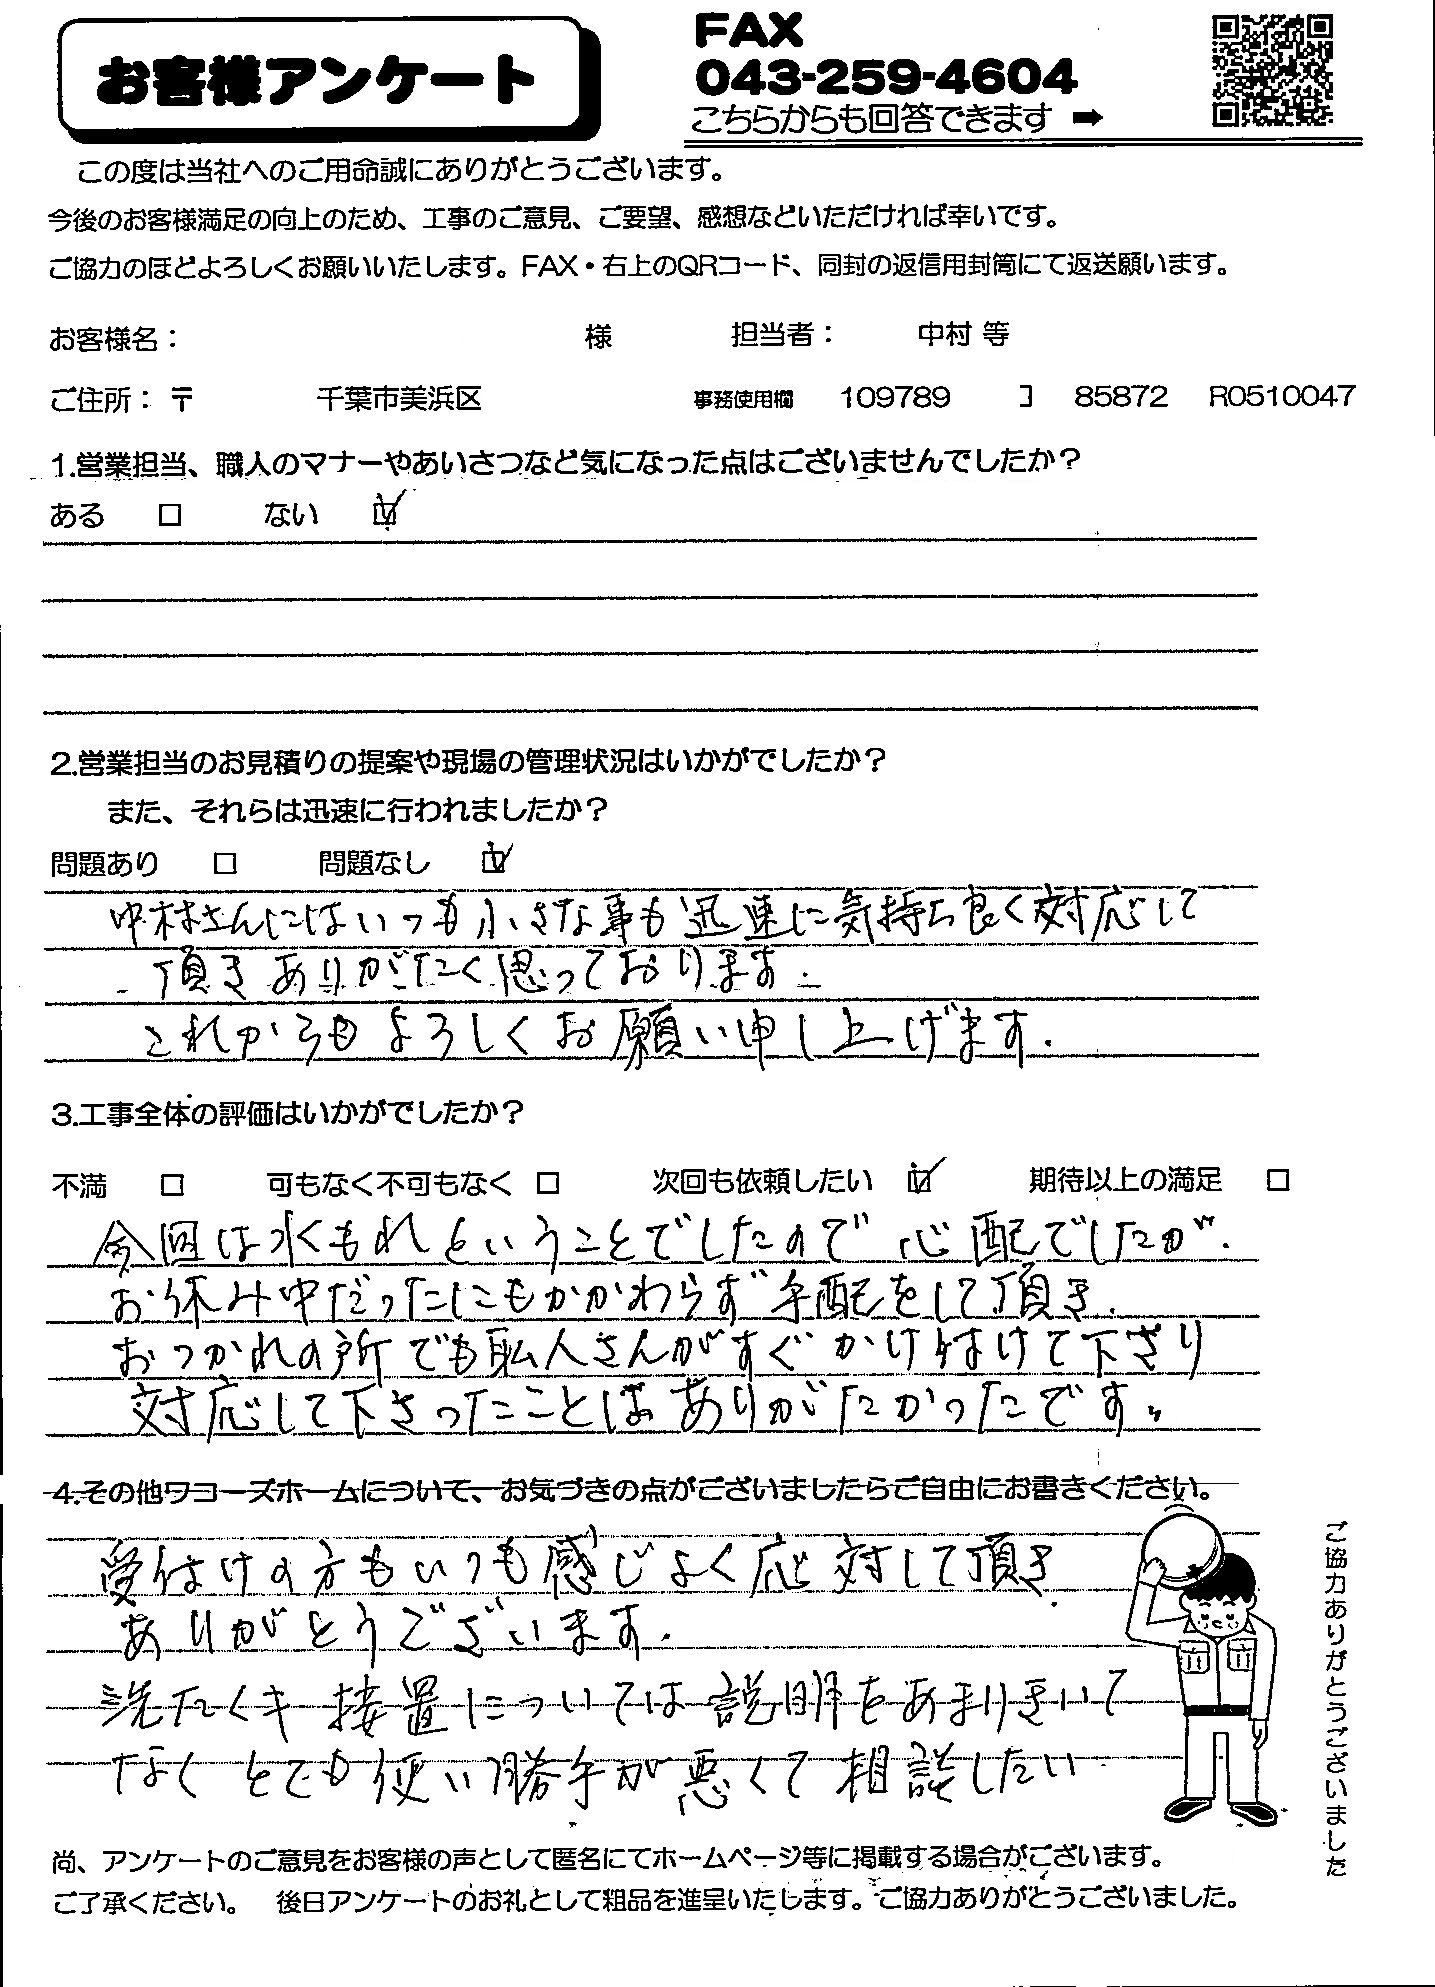 お客様アンケート
FAX
043-259-4604
こちらからも回答できます ➡
この度は当社へのご用命誠にありがとうございます。
今後のお客様満足の向上のため、工事のご意見、ご要望、感想などいただければ幸いです。
ご協力のほどよろしくお願いいたします。FAX・右上のQRコード、同封の返信用封筒にて返送願います。
お客様名： 様 担当者： 中村 等
ご住所：〒 千葉市美浜区 事務使用欄 109789 コ 85872 R0510047
1.営業担当、職人のマナーやあいさつなど気になった点はございませんでしたか？
ある □ ない ☑
2.営業担当のお見積りの提案や現場の管理状況はいかがでしたか？
また、それらは迅速に行われましたか？
問題あり □ 問題なし ☑
中村さんにはいつも小さな事も迅速に気持ち良く対応して
頂きありがたく思っております.
これからもよろしくお願い申し上げます.
3.工事全体の評価はいかがでしたか？
不満 □ 可もなく不可もなく □ 次回も依頼したい ☑ 期待以上の満足 □
今回は水くもれということでしたので心配でしたが.
お休み中だったにもかかわらず手配をして頂き.
おつかれの所でも職人さんがすぐかけ付けて下さり
対応して下さったことはありがたかったです。
4.その他ワコーズホームについて、お気づきの点がございましたらご自由にお書きください。
受付けの方もいつも感じよく応対して頂き
ありがとうございます.
洗たくキ接置については説明をあまりきいて
なくとても使い勝手が悪くて相談したい
ご協力ありがとうございました
尚、アンケートのご意見をお客様の声として匿名にてホームページ等に掲載する場合がございます。
ご了承ください。 後日アンケートのお礼として粗品を進呈いたします。ご協力ありがとうございました。